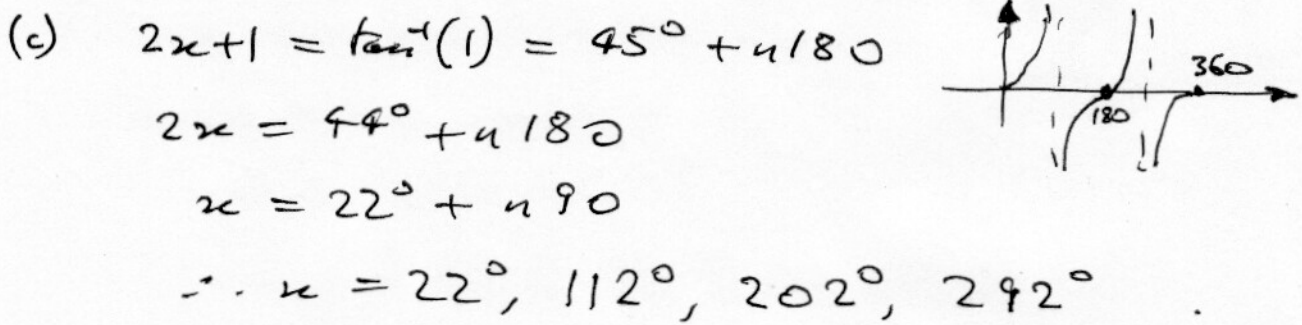 (c) 2x+1 = tan⁻¹(1) = 45° + n180
2x = 44° + n180
x = 22° + n90
∴ x = 22°, 112°, 202°, 292°.
360
180